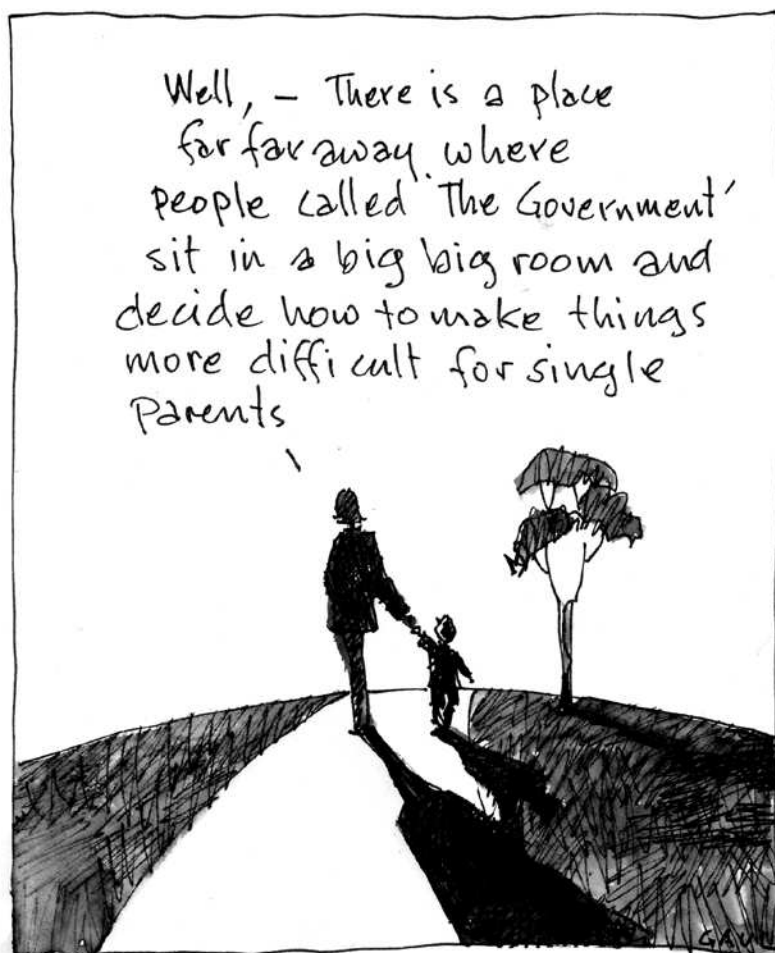 Well, – There is a place
far far away. where
people called 'The Government'
sit in a big big room and
decide how to make things
more difficult for single
parents